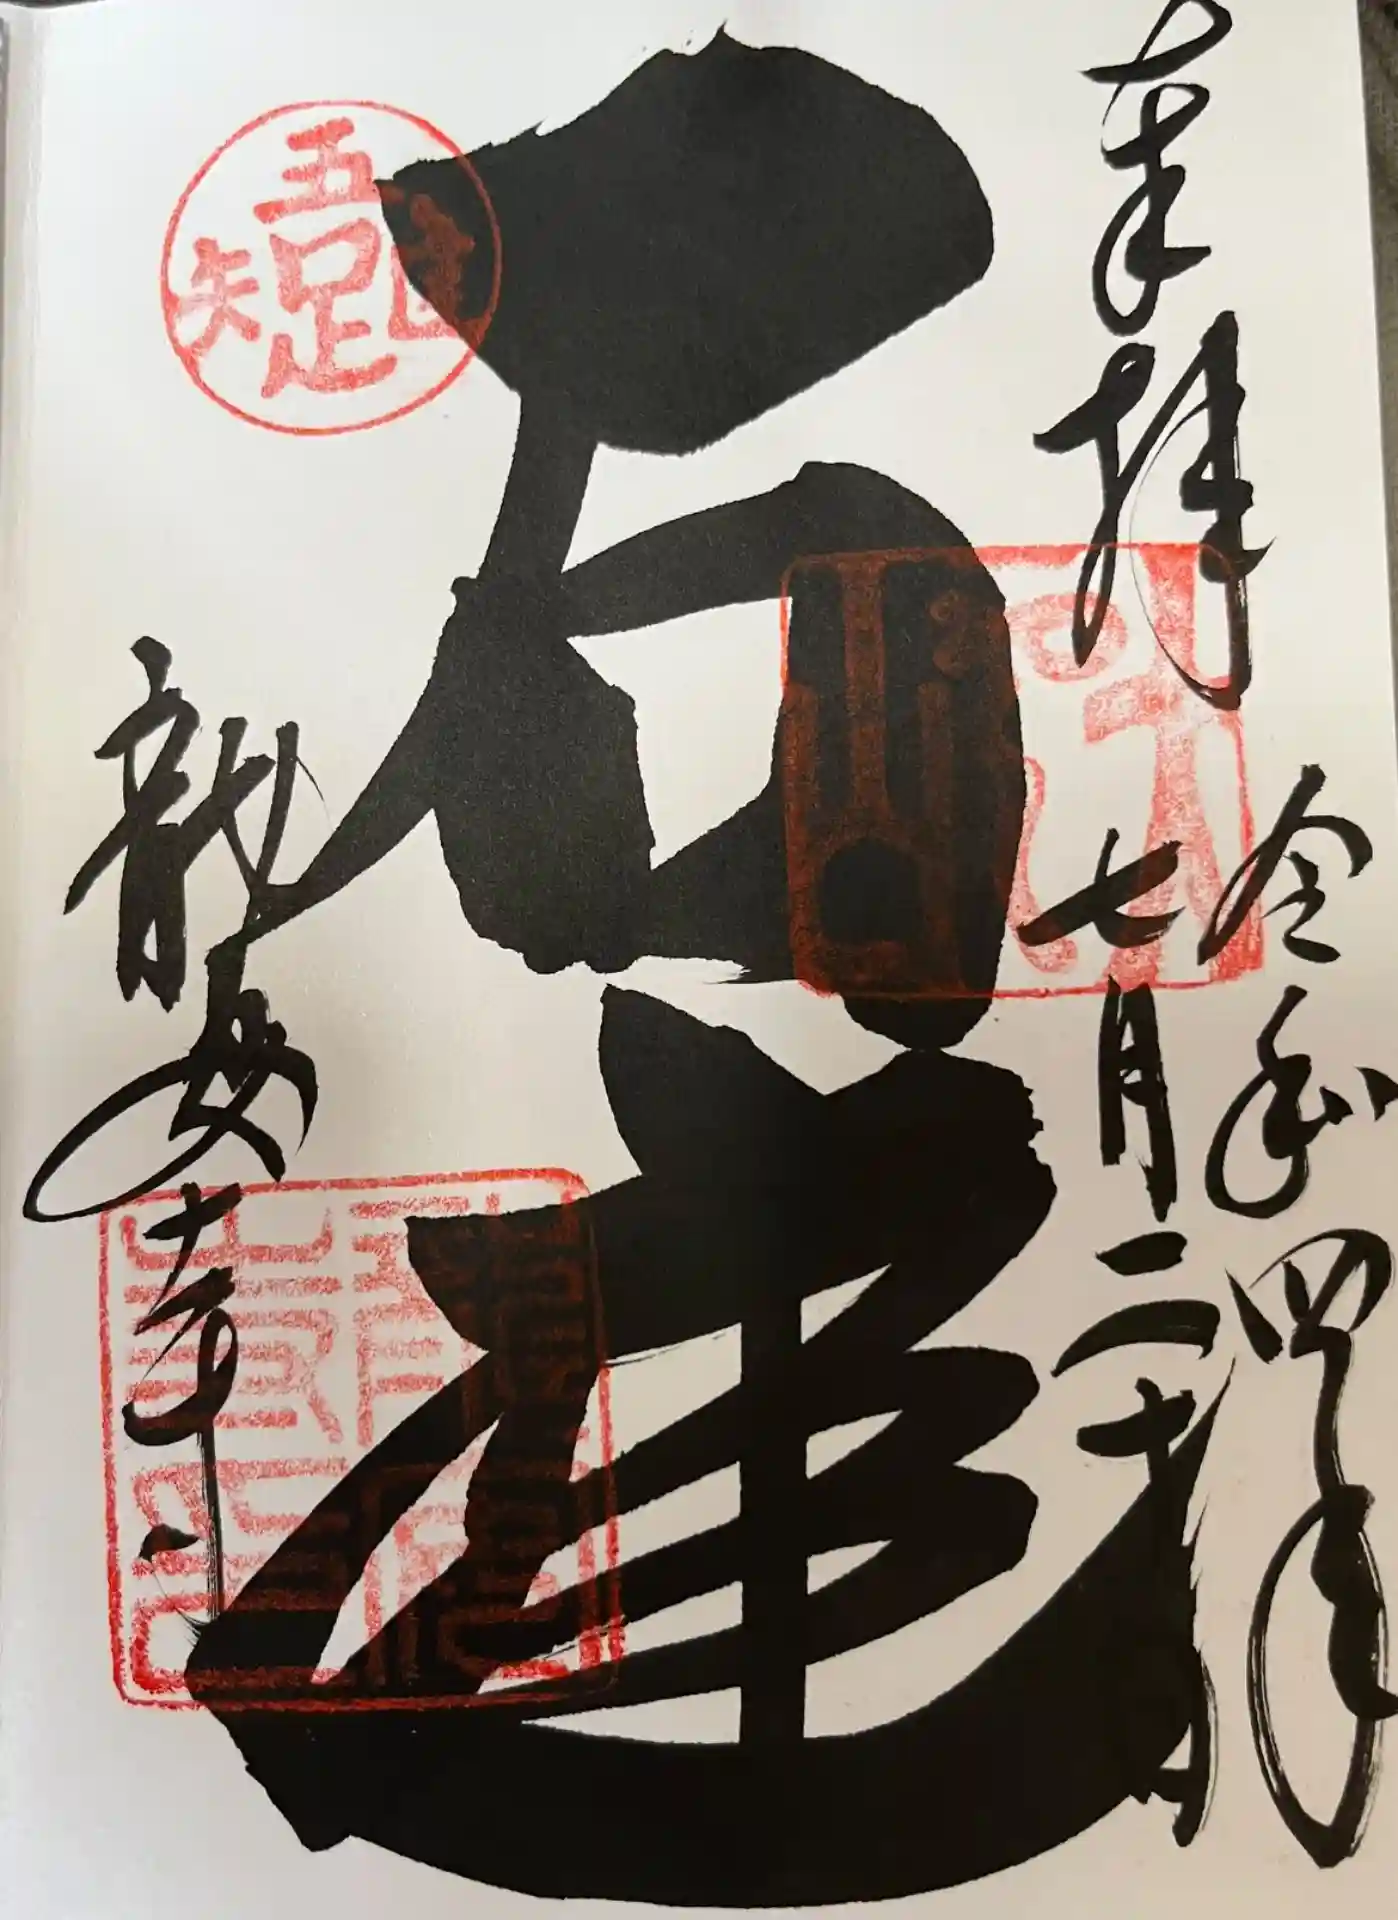 奉拝
令和四年
七月二十日
石庭
龍安寺
吾唯足知